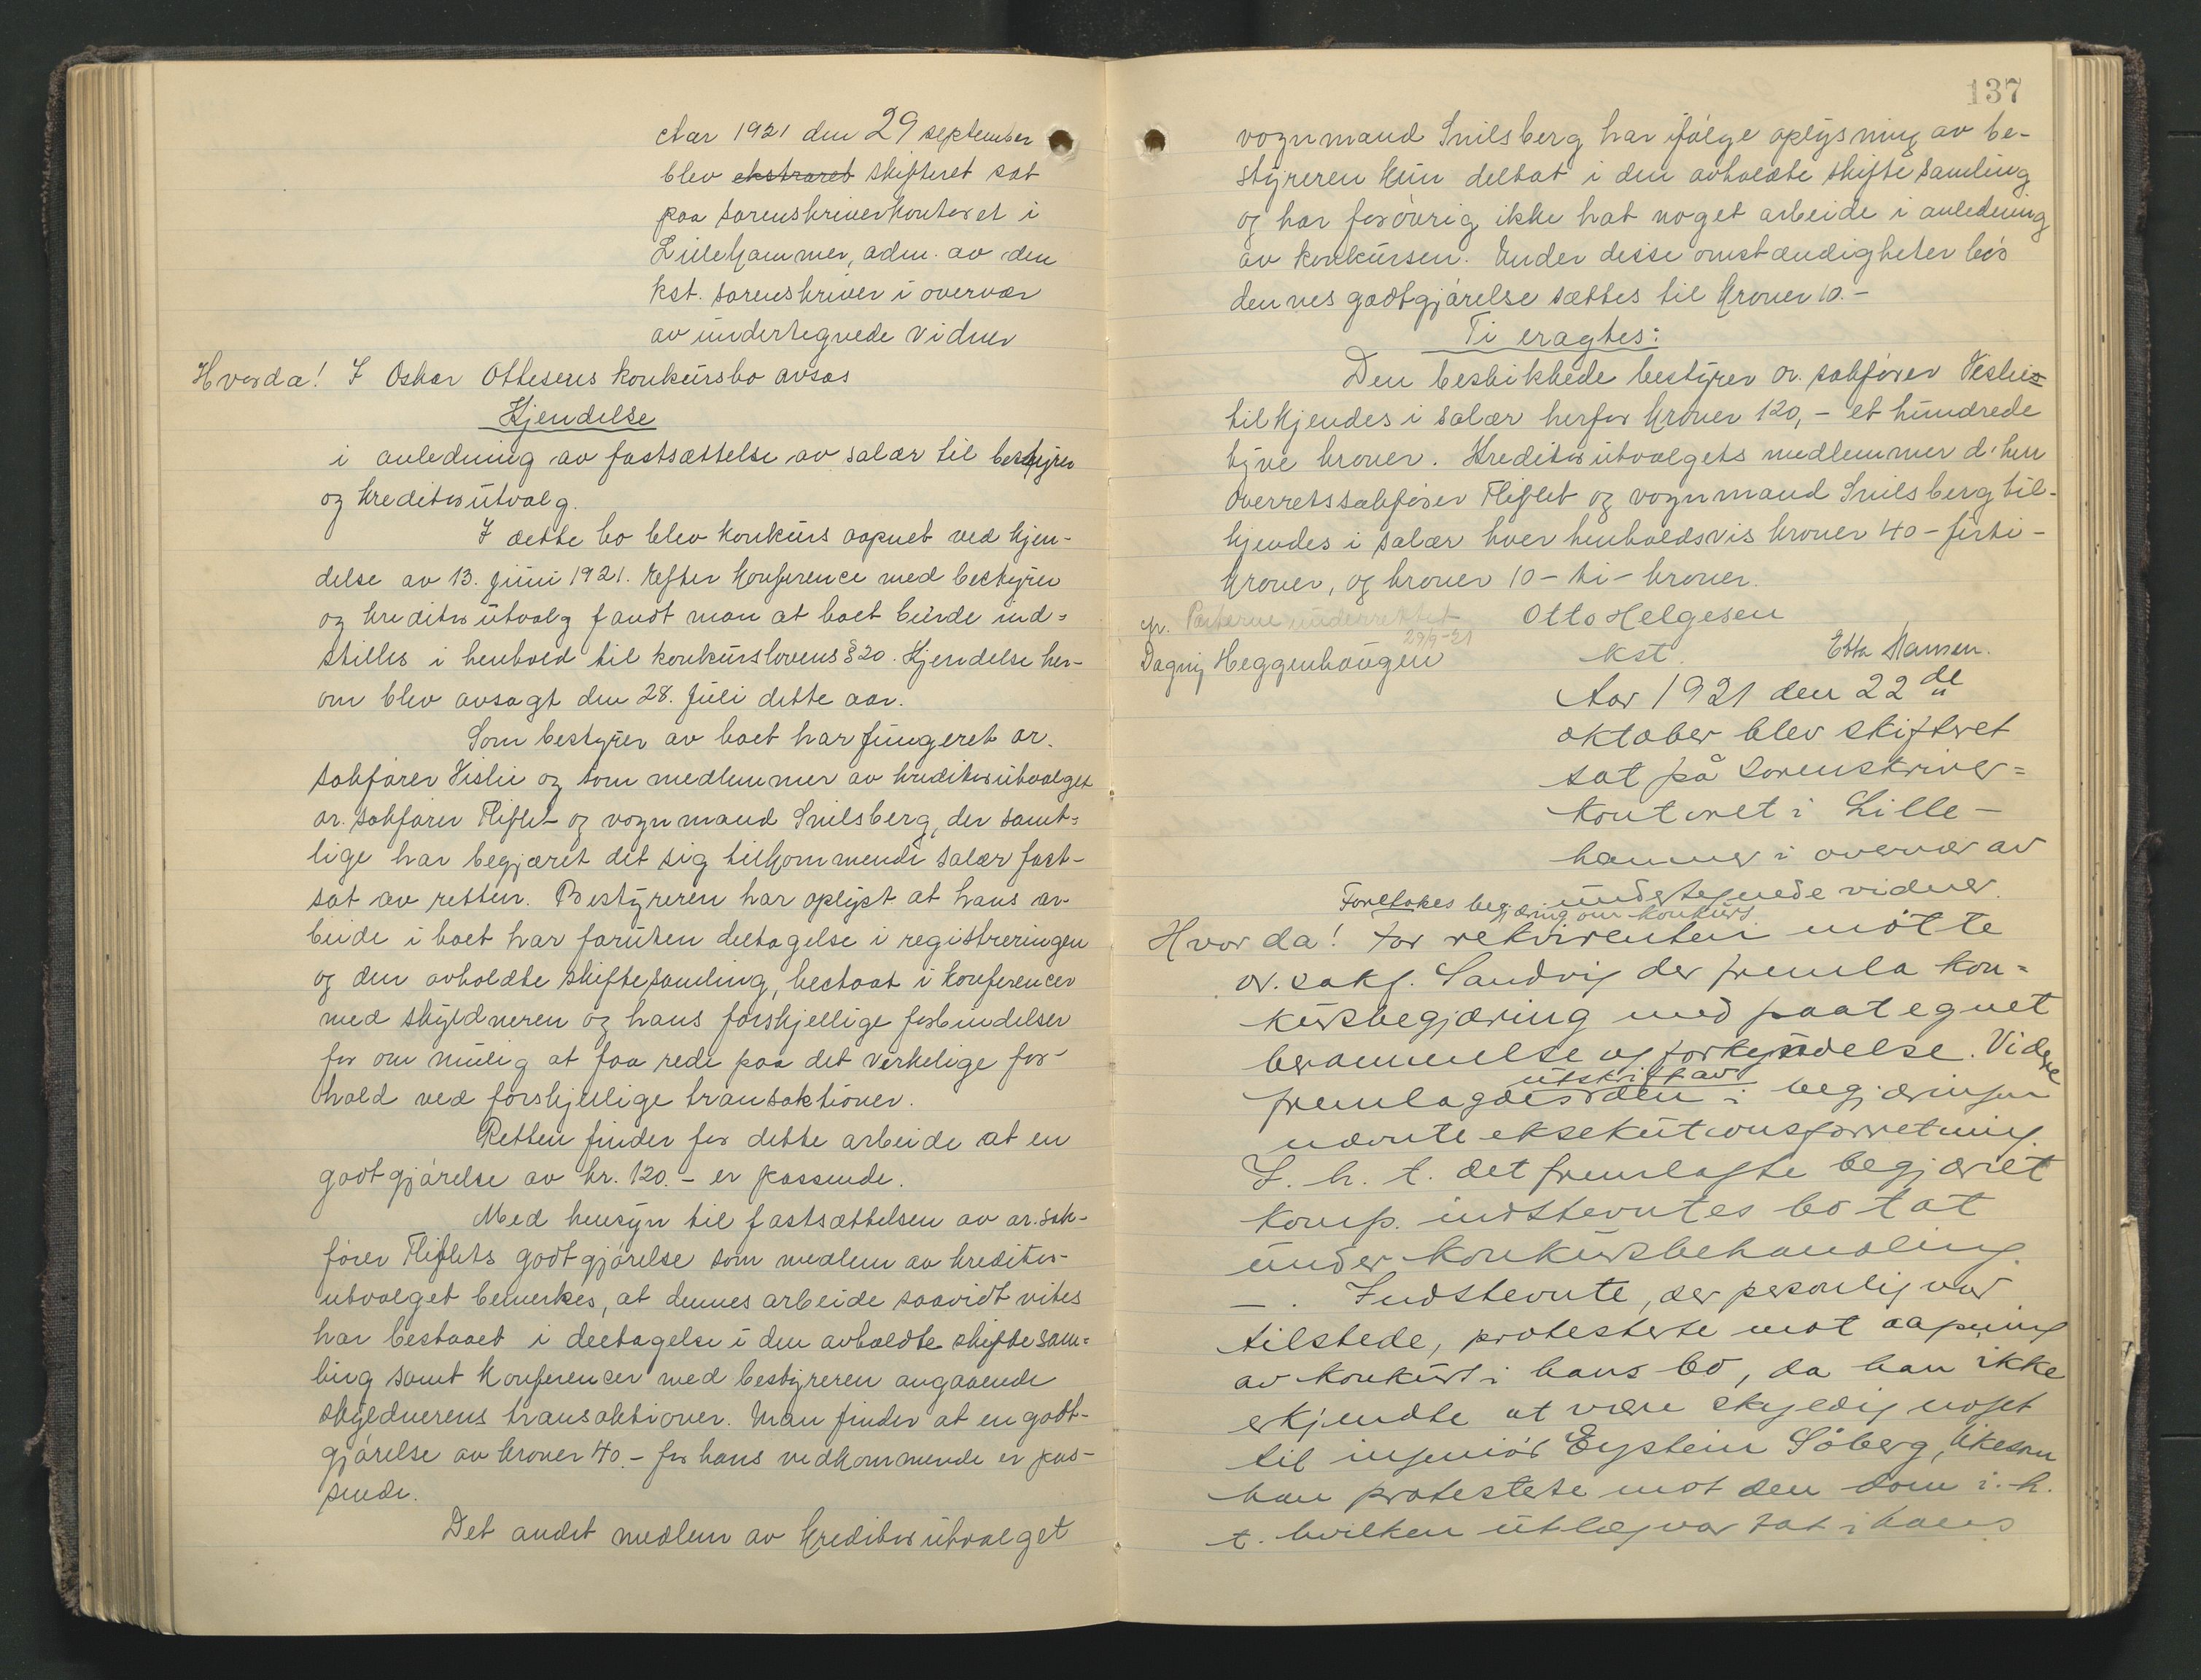 Aar 1921 den 29 september
blev ekstraret skifteret sat
paa sorenskriverkontoret i
Lillehammer, adm. av den
kst. sorenskriver i overvær
av undertegnede vidner
Hvorda! I Oskar Ottesens konkursbo avsas
Kjendelse
i anledning av fastsættelse av salær til bestyrer
og kreditorutvalg.
I dette bo blev konkurs aapnet ved kjen-
delse av 13. juni 1921. Efter konference med bestyrer
og kreditorutvalg fandt man at boet burde ind=
stilles i henhold til konkurslovens § 20. Kjendelse her-
om blev avsagt den 28. juli dette aar.
Som bestyrer av boet har fungeret or.
sakfører Vislie og som medlemmer av kreditorutvalget
or. sakfører Fliflet og vognmand Snilsberg, der samt=
lige har begjæret det sig tilkommende salær fast-
sat av retten. Bestyreren har oplyst at hans ar-
beide i boet har foruten deltagelse i registreringen
og den avholdte skiftesamling, bestaat i konferencer
med skyldneren og hans forskjellige forbindelser
for om mulig at faa rede paa det virkelige for-
hold ved forskjellige transaktioner.
Retten finder for dette arbeide at en
godtgjørelse av kr. 120.- er passende.
Med hensyn til fastsættelsen av or. sak-
fører Fliflets godtgjørelse som medlem av kreditor-
utvalget bemerkes, at dennes arbeide saavidt vites
har bestaaet i deltagelse i den avholdte skiftesam=
ling samt konferencer med bestyreren angaaende
skyldnerens transaktioner. Man finder at en godt-
gjørelse av kroner 40.- for hans vedkommende er pas-
sende.
Det andet medlem av kreditorutvalget
137
vognmand Snilsberg har ifølge oplysning av be-
styreren kun deltat i den avholdte skiftesamling
og har forøvrig ikke hat noget arbeide i anledning
av konkursen. Under disse omstændigheter bør
dennes godtgjørelse sættes til kroner 10.-
Ti eragtes:
Den beskikkede bestyrer or. sakfører Vislie
tilkjendes i salær herfor kroner 120,- et hundrede
tyve kroner. Kreditorutvalgets medlemmer d'hrr
overretssakfører Fliflet og vognmand Snilsberg til-
kjendes i salær hver henholdsvis kroner 40 - førti -
kroner, og kroner 10 - ti - kroner.
Parterne underrettet Otto Helgesen
29/9-21
Dagny Heggenhaugen kst. Ebba Hansen.
Aar 1921 den 22de
oktober blev skifteret
sat på Sorenskriver=
kontoret i Lille-
hammer i overvær av
undertegnede vidner.
Foretokes begjæring om konkurs
Hvor da! For rekvirenten møtte
or. sakf. Sandvig der fremla kon=
kursbegjæring med paategnet
berammelse og forkyndelse. Videre
utskrift av
fremlagdes den i begjæringen
nævnte eksekutionsforretning.
I. h. t. det fremlagte begjæret
komp. indstevntes bo tat
under konkursbehandling.
- . Indstevnte, der personlig var
tilstede, protesterte mot aapning
av konkurs i hans bo, da han ikke
erkjendte at være skyldig noget
til ingeniør Eystein Söberg, likesom
han protesterte mot den dom i. h.
t. hvilken utlæg var tat i hans